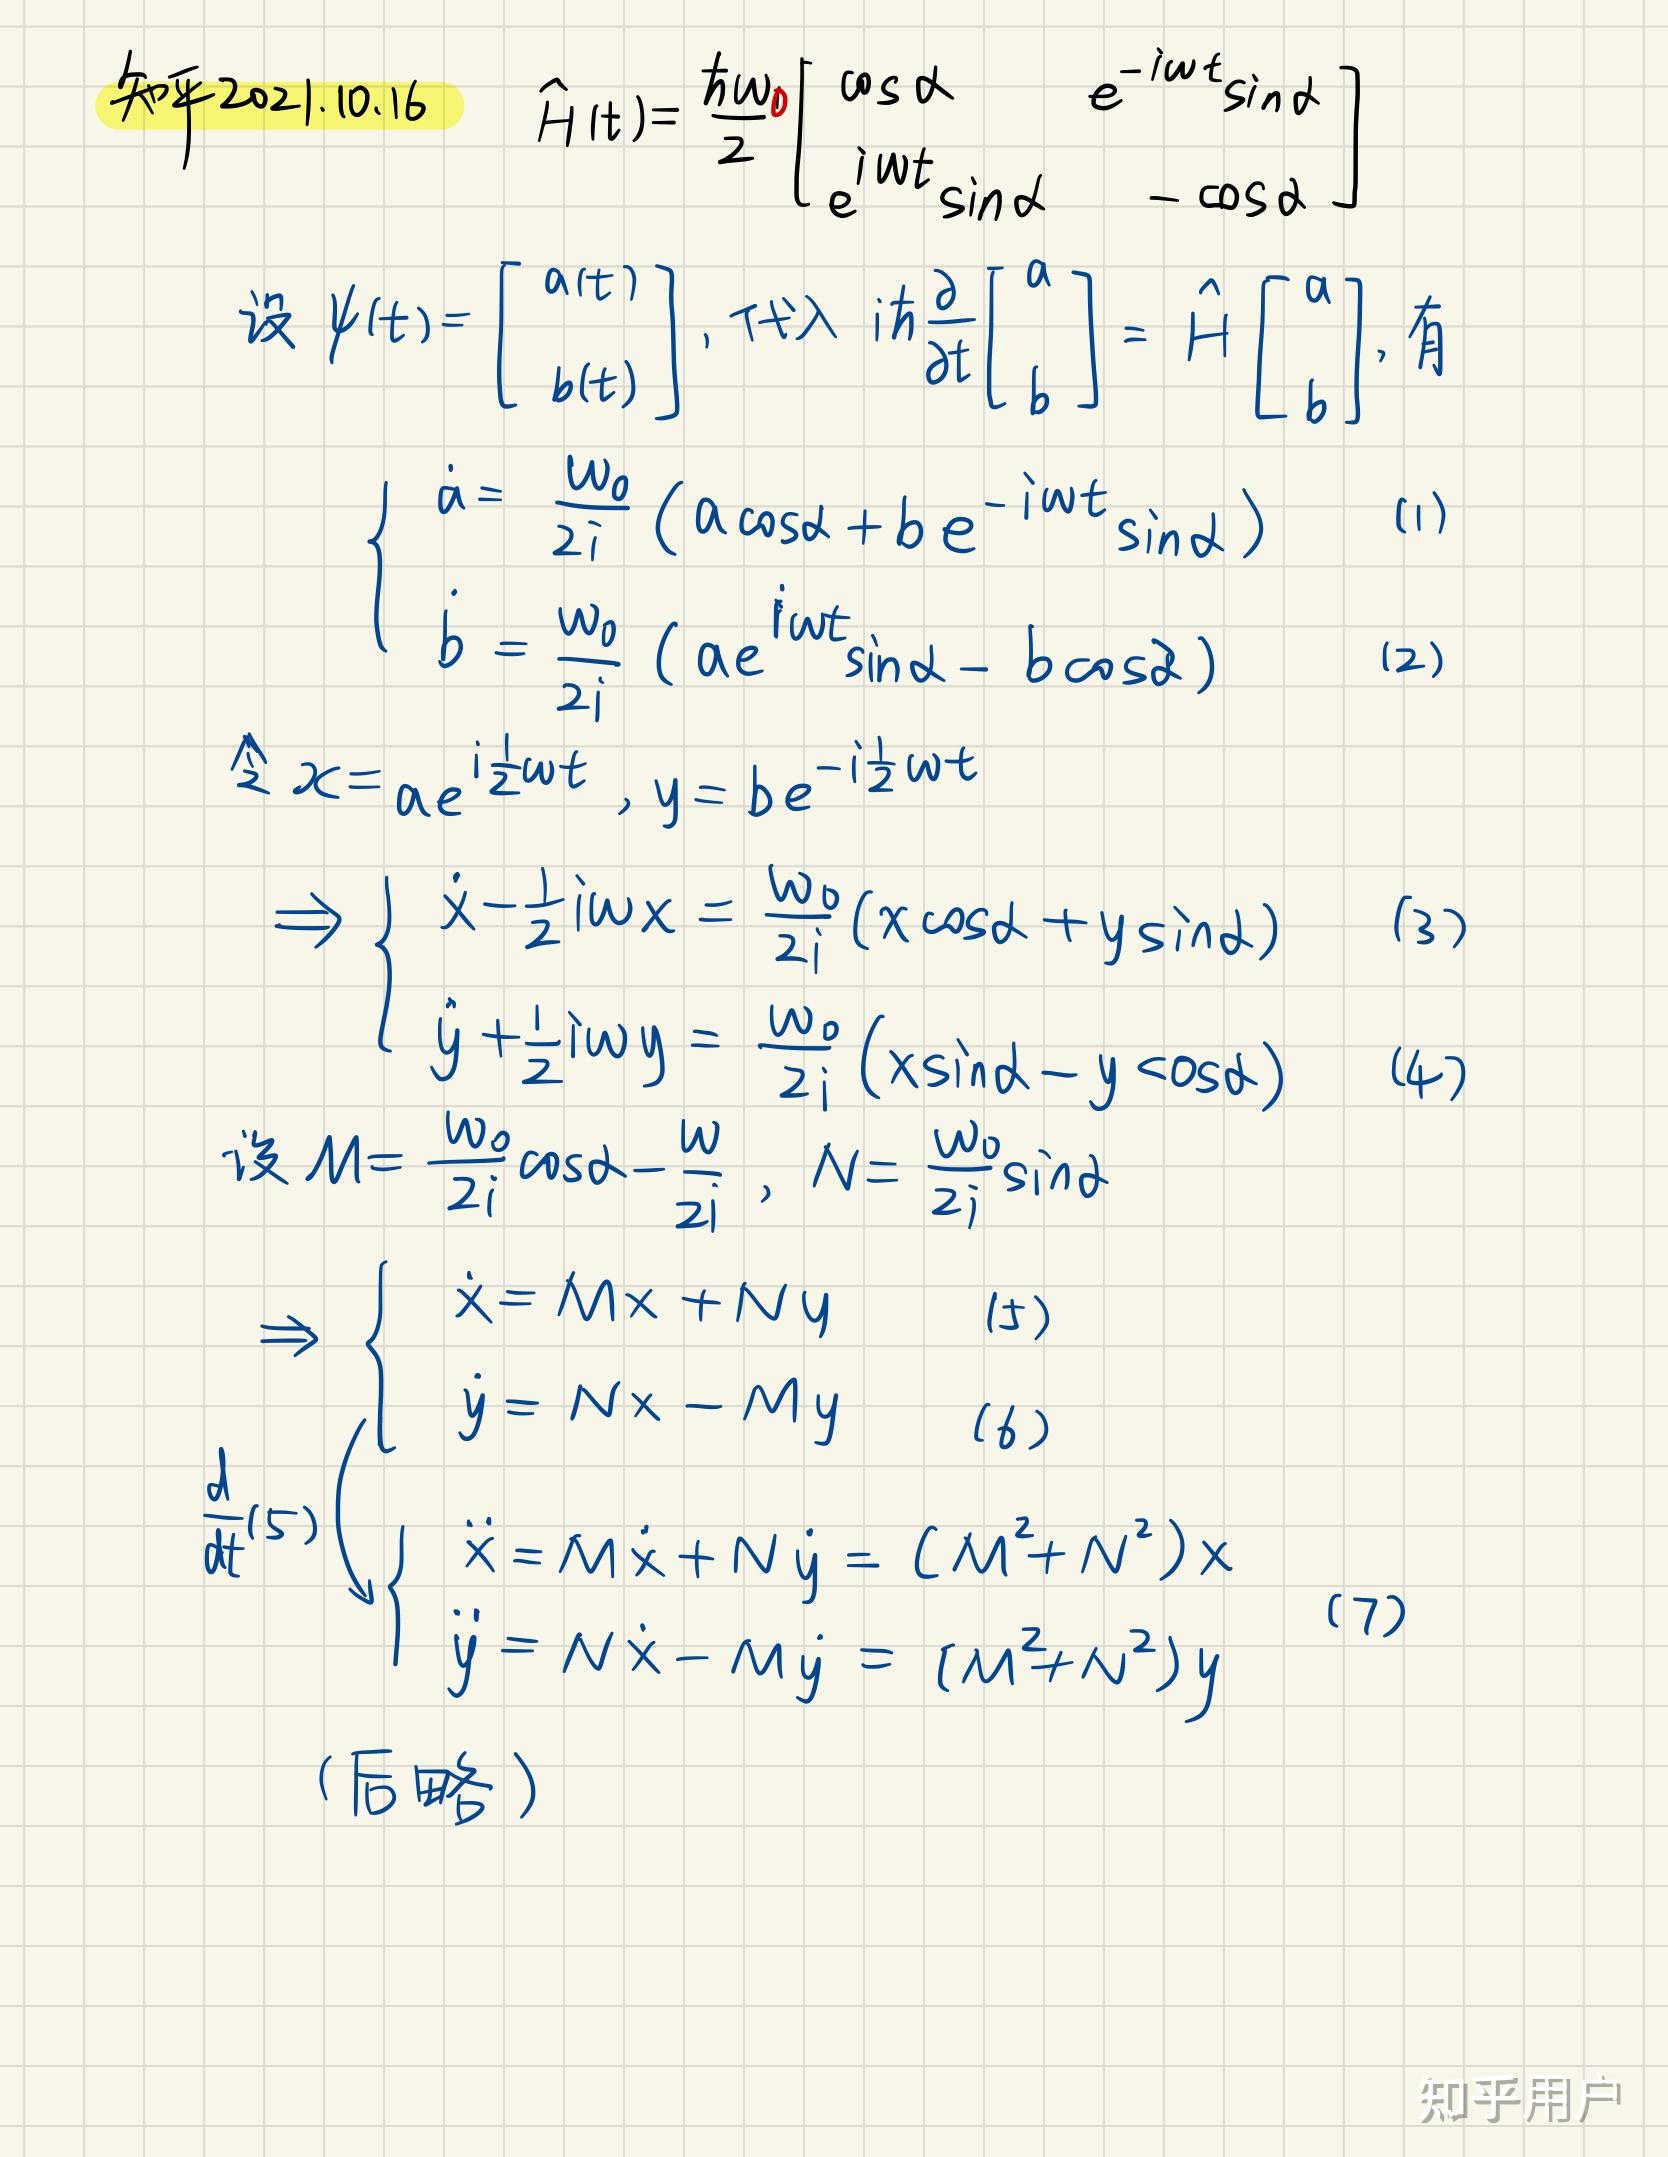 知乎2021.10.16 Ĥ(t)=ħω₀/2 [cosα e^{-iωt}sinα; e^{iωt}sinα -cosα]
设 ψ(t)=[a(t); b(t)], 代入 iħ ∂/∂t [a; b] = Ĥ [a; b], 有
ȧ= ω₀/2i (a cosα+b e^{-iωt} sinα) (1)
ḃ = ω₀/2i (ae^{iωt}sinα- b cosα) (2)
令 x=ae^{i½ωt}, y=be^{-i½ωt}
⇒ { ẋ-½iωx = ω₀/2i (x cosα+y sinα) (3)
ẏ+½iωy = ω₀/2i (x sinα-y cosα) (4)
设 M= ω₀/2i cosα- ω/2i, N= ω₀/2i sinα
⇒ { ẋ=Mx+Ny (5)
ẏ= Nx-My (6)
d/dt (5) { ẍ=Mẋ+Nẏ=(M²+N²)x
ÿ=Nẋ-Mẏ=(M²+N²)y (7)
(后略)
知乎用户